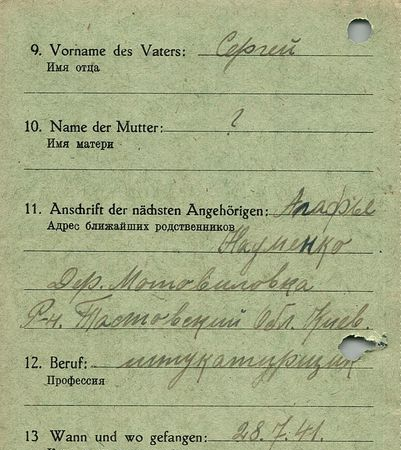 9. Vorname des Vaters: Сергей
Имя отца
10. Name der Mutter: ?
Имя матери
11. Anschrift der nächsten Angehörigen: Агафье
Адрес ближайших родственников
Науменко
Дер. Мотовиловка
Р-н. Тастовский Обл. Киев.
12. Beruf: штукатурщик
Профессия
13 Wann und wo gefangen: 28.7.41.